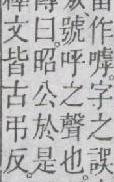 作嘑。字之誤
號呼之聲也。
傳曰。昭公於是
文皆古弔反。